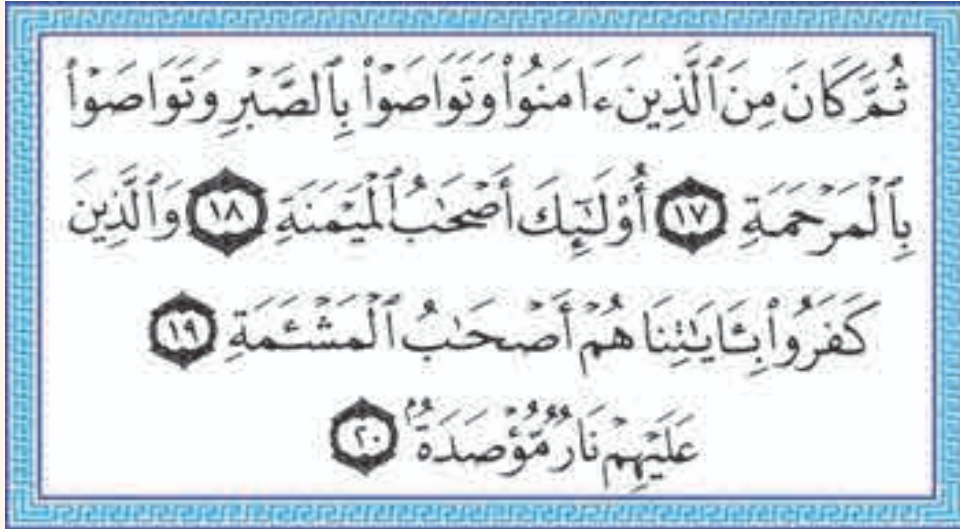 ثُمَّ كَانَ مِنَ ٱلَّذِينَ ءَامَنُوا۟ وَتَوَاصَوْا۟ بِٱلصَّبْرِ وَتَوَاصَوْا۟
بِٱلْمَرْحَمَةِ ١٧ أُو۟لَٰٓئِكَ أَصْحَٰبُ ٱلْمَيْمَنَةِ ١٨ وَٱلَّذِينَ
كَفَرُوا۟ بِـَٔايَٰتِنَا هُمْ أَصْحَٰبُ ٱلْمَشْـَٔمَةِ ١٩
عَلَيْهِمْ نَارٌ مُّؤْصَدَةٌۢ ٢٠